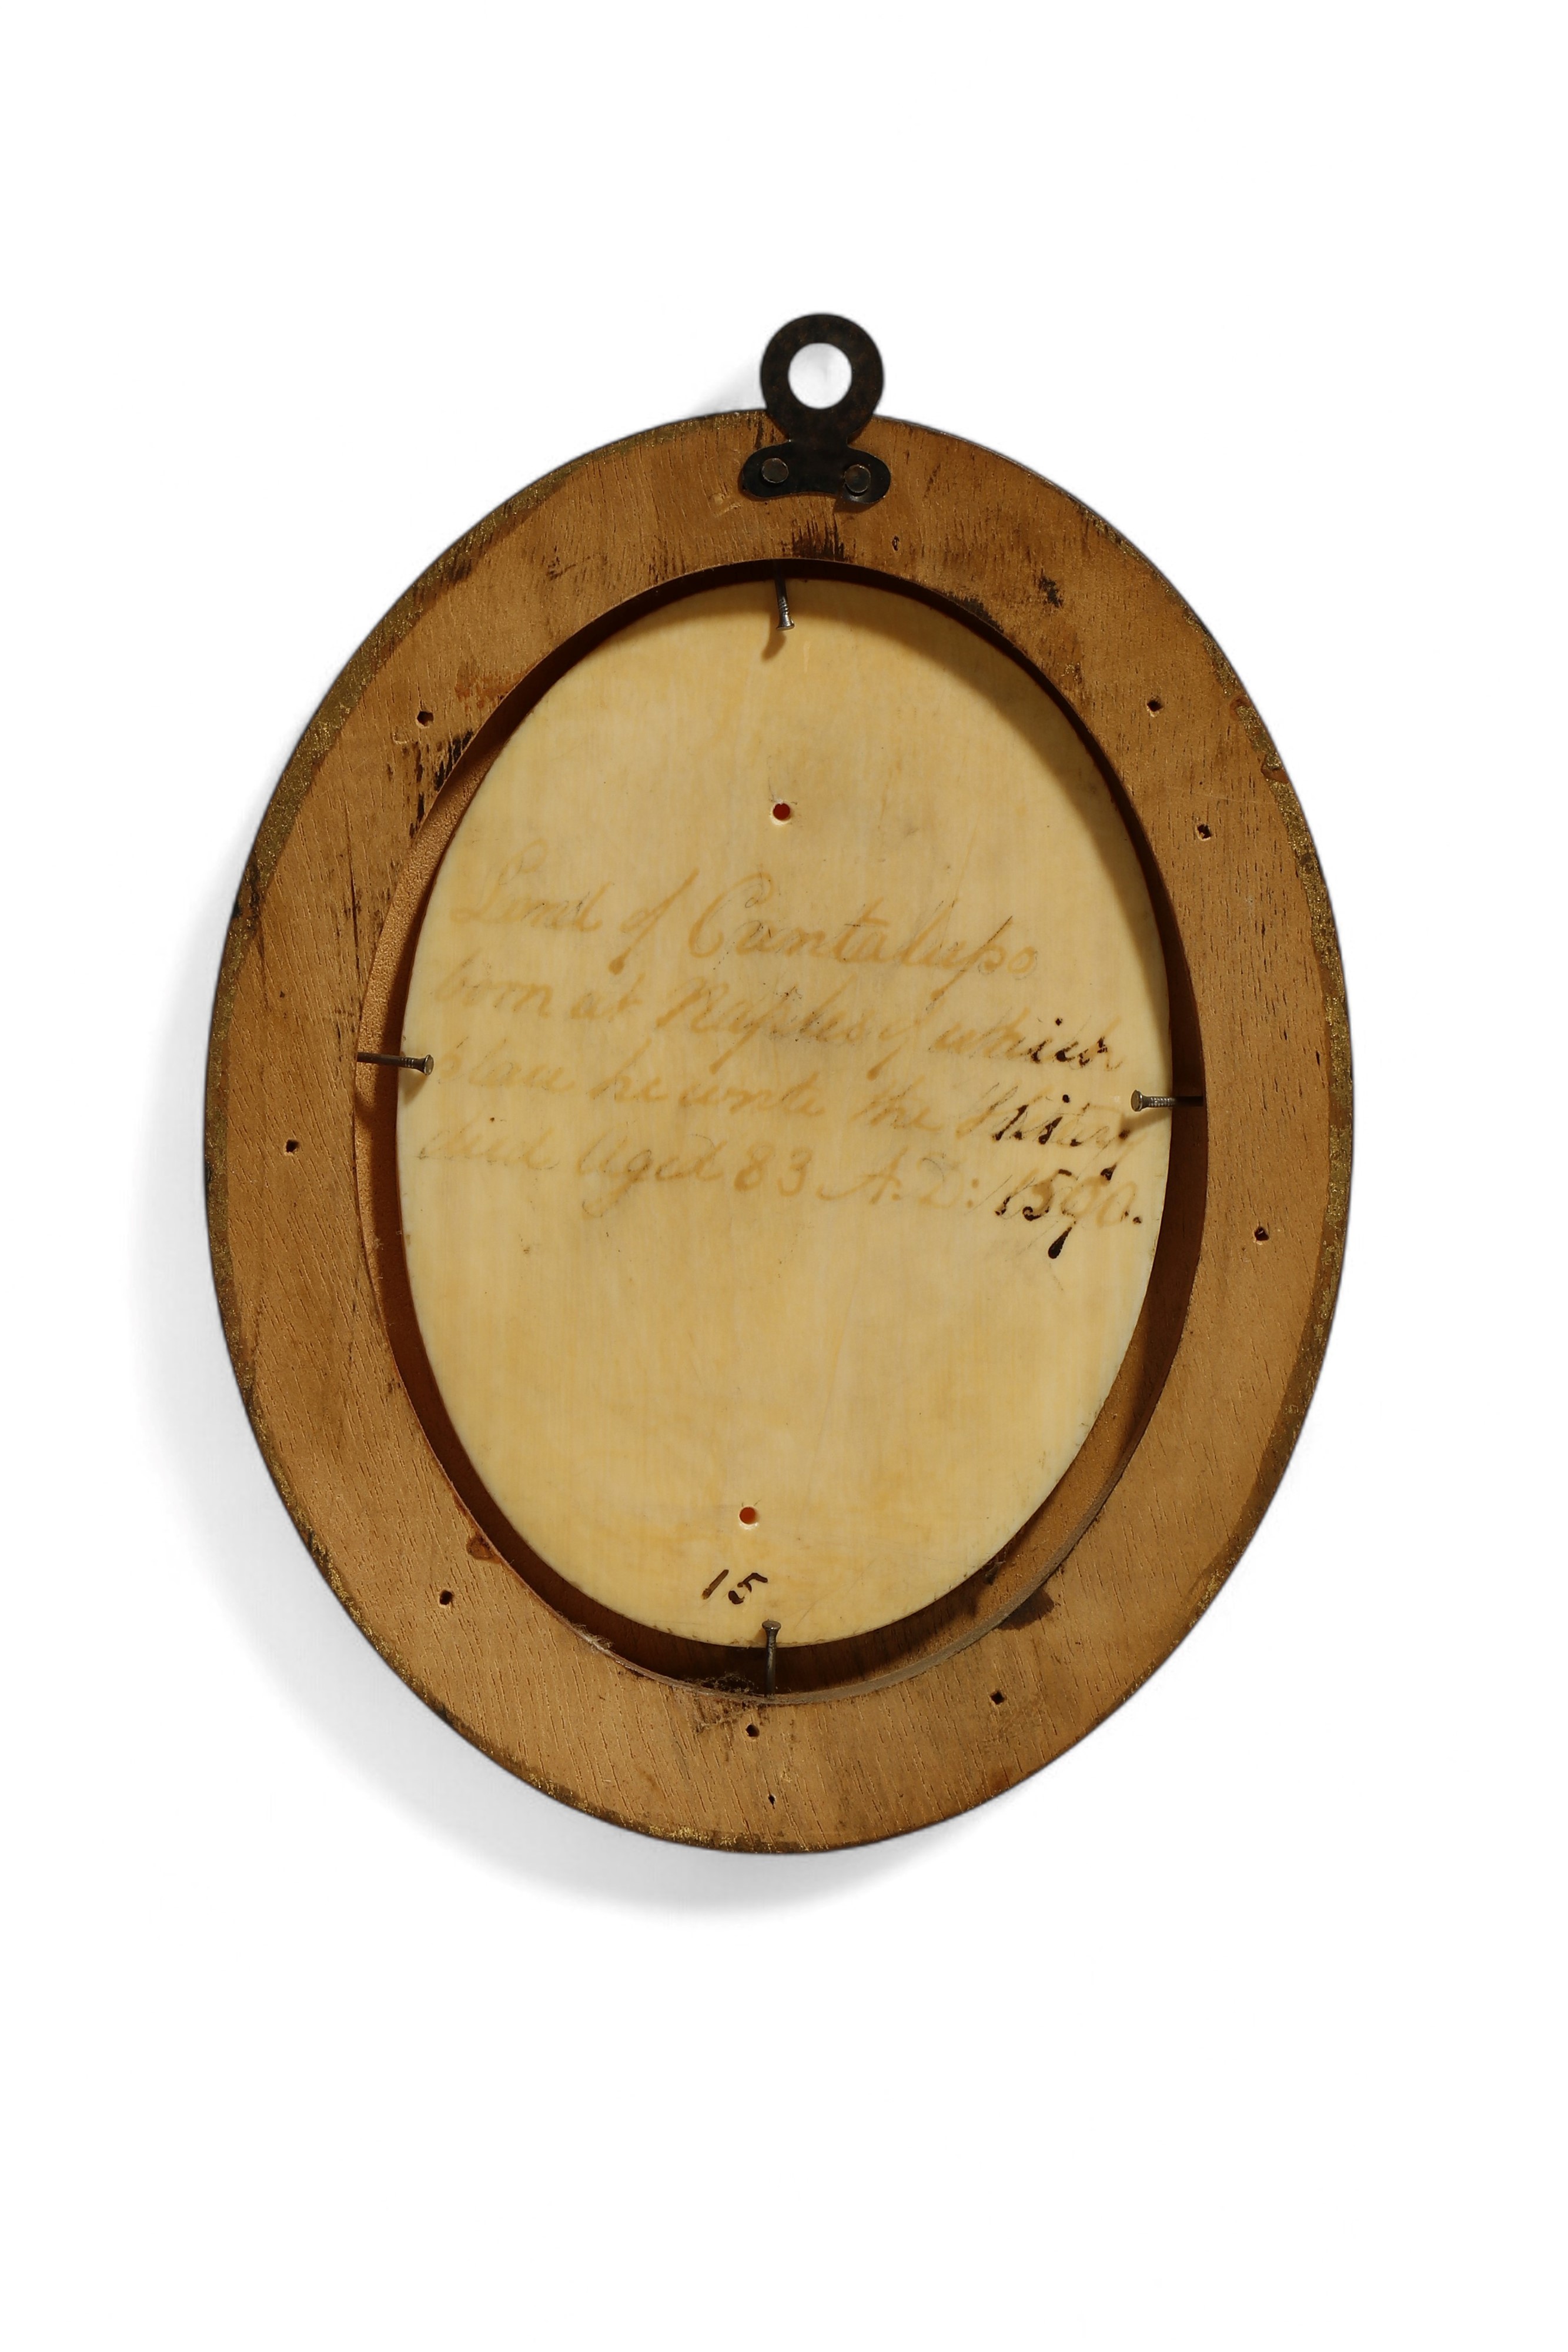 Lord of Cantalupo
born at Naples of which
place he wrote the History
died Aged 83 A.D: 1590.
15